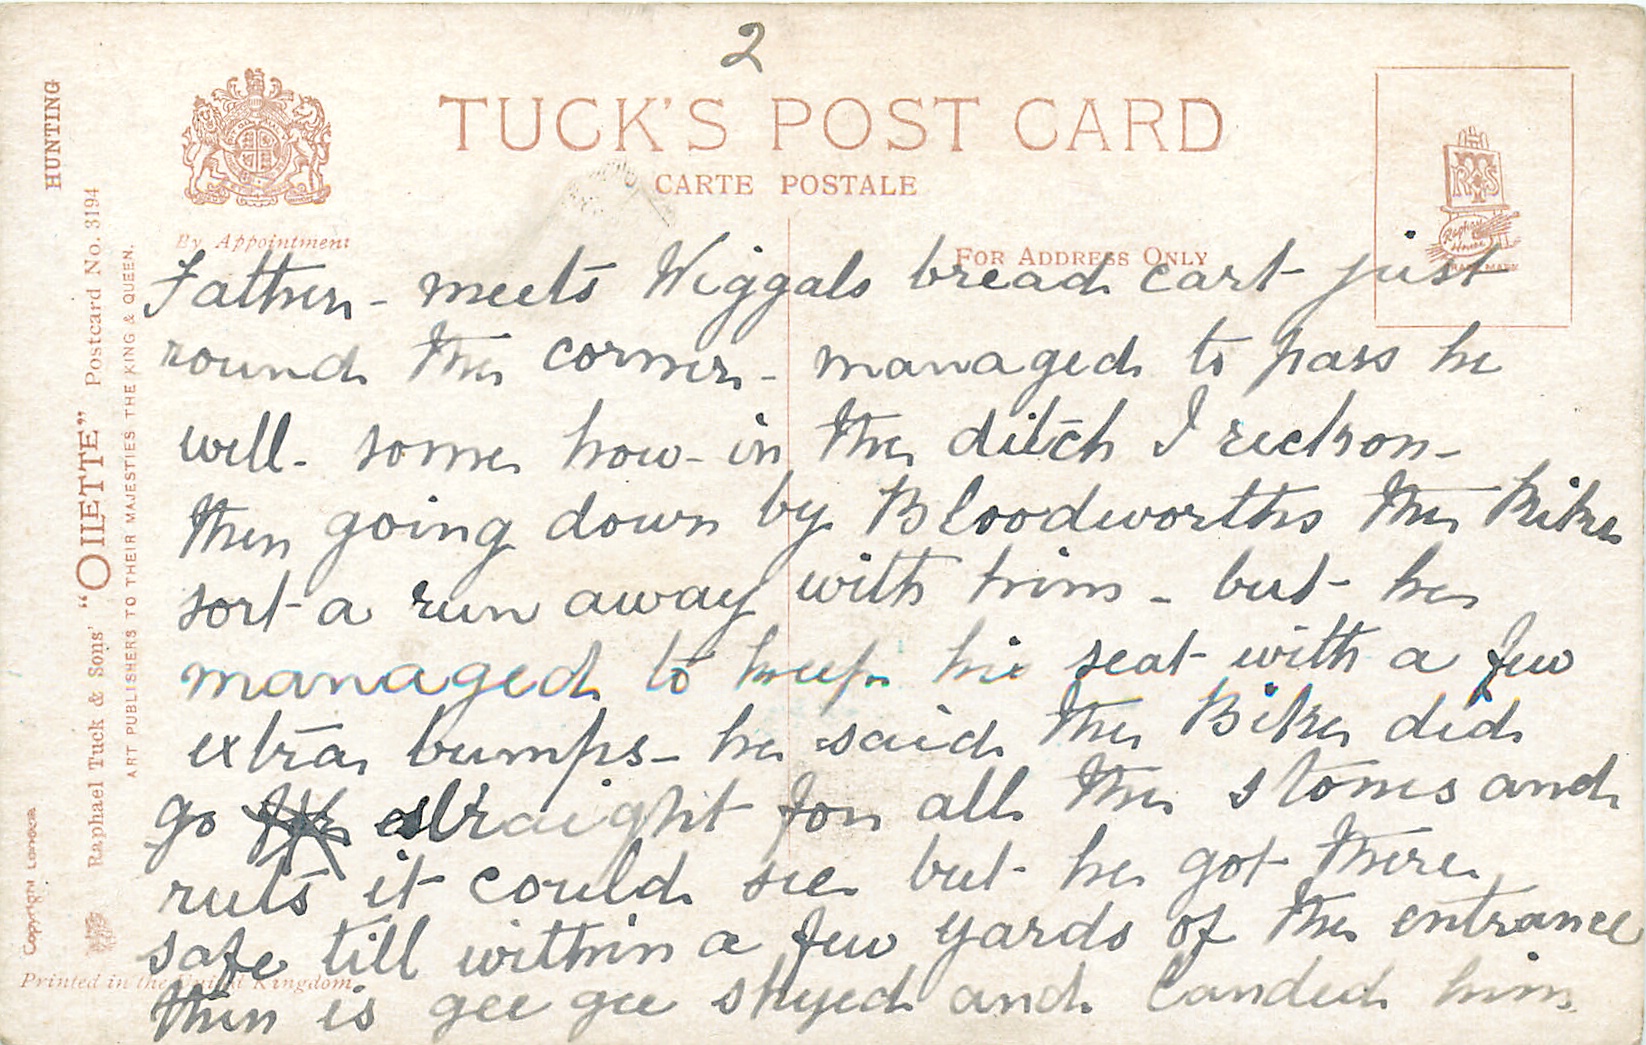 2
TUCK'S POST CARD
CARTE POSTALE
By Appointment
FOR ADDRESS ONLY
Raphael House
TRADE MARK
HUNTING
Raphael Tuck & Sons' "OILETTE" Postcard No. 3194
ART PUBLISHERS TO THEIR MAJESTIES THE KING & QUEEN.
Copyright London
Printed in the United Kingdom
Father - meets Wiggals bread cart just
round the corner - managed to pass he
will - some how - in the ditch I reckon -
then going down by Bloodworths the Bike
sort a run away with him - but he
managed to keep his seat with a few
extra bumps - he said the Bike did
go straight for all the stones and
ruts it could see but he got there
safe till within a few yards of the entrance
then is gee gee shyed and landed him